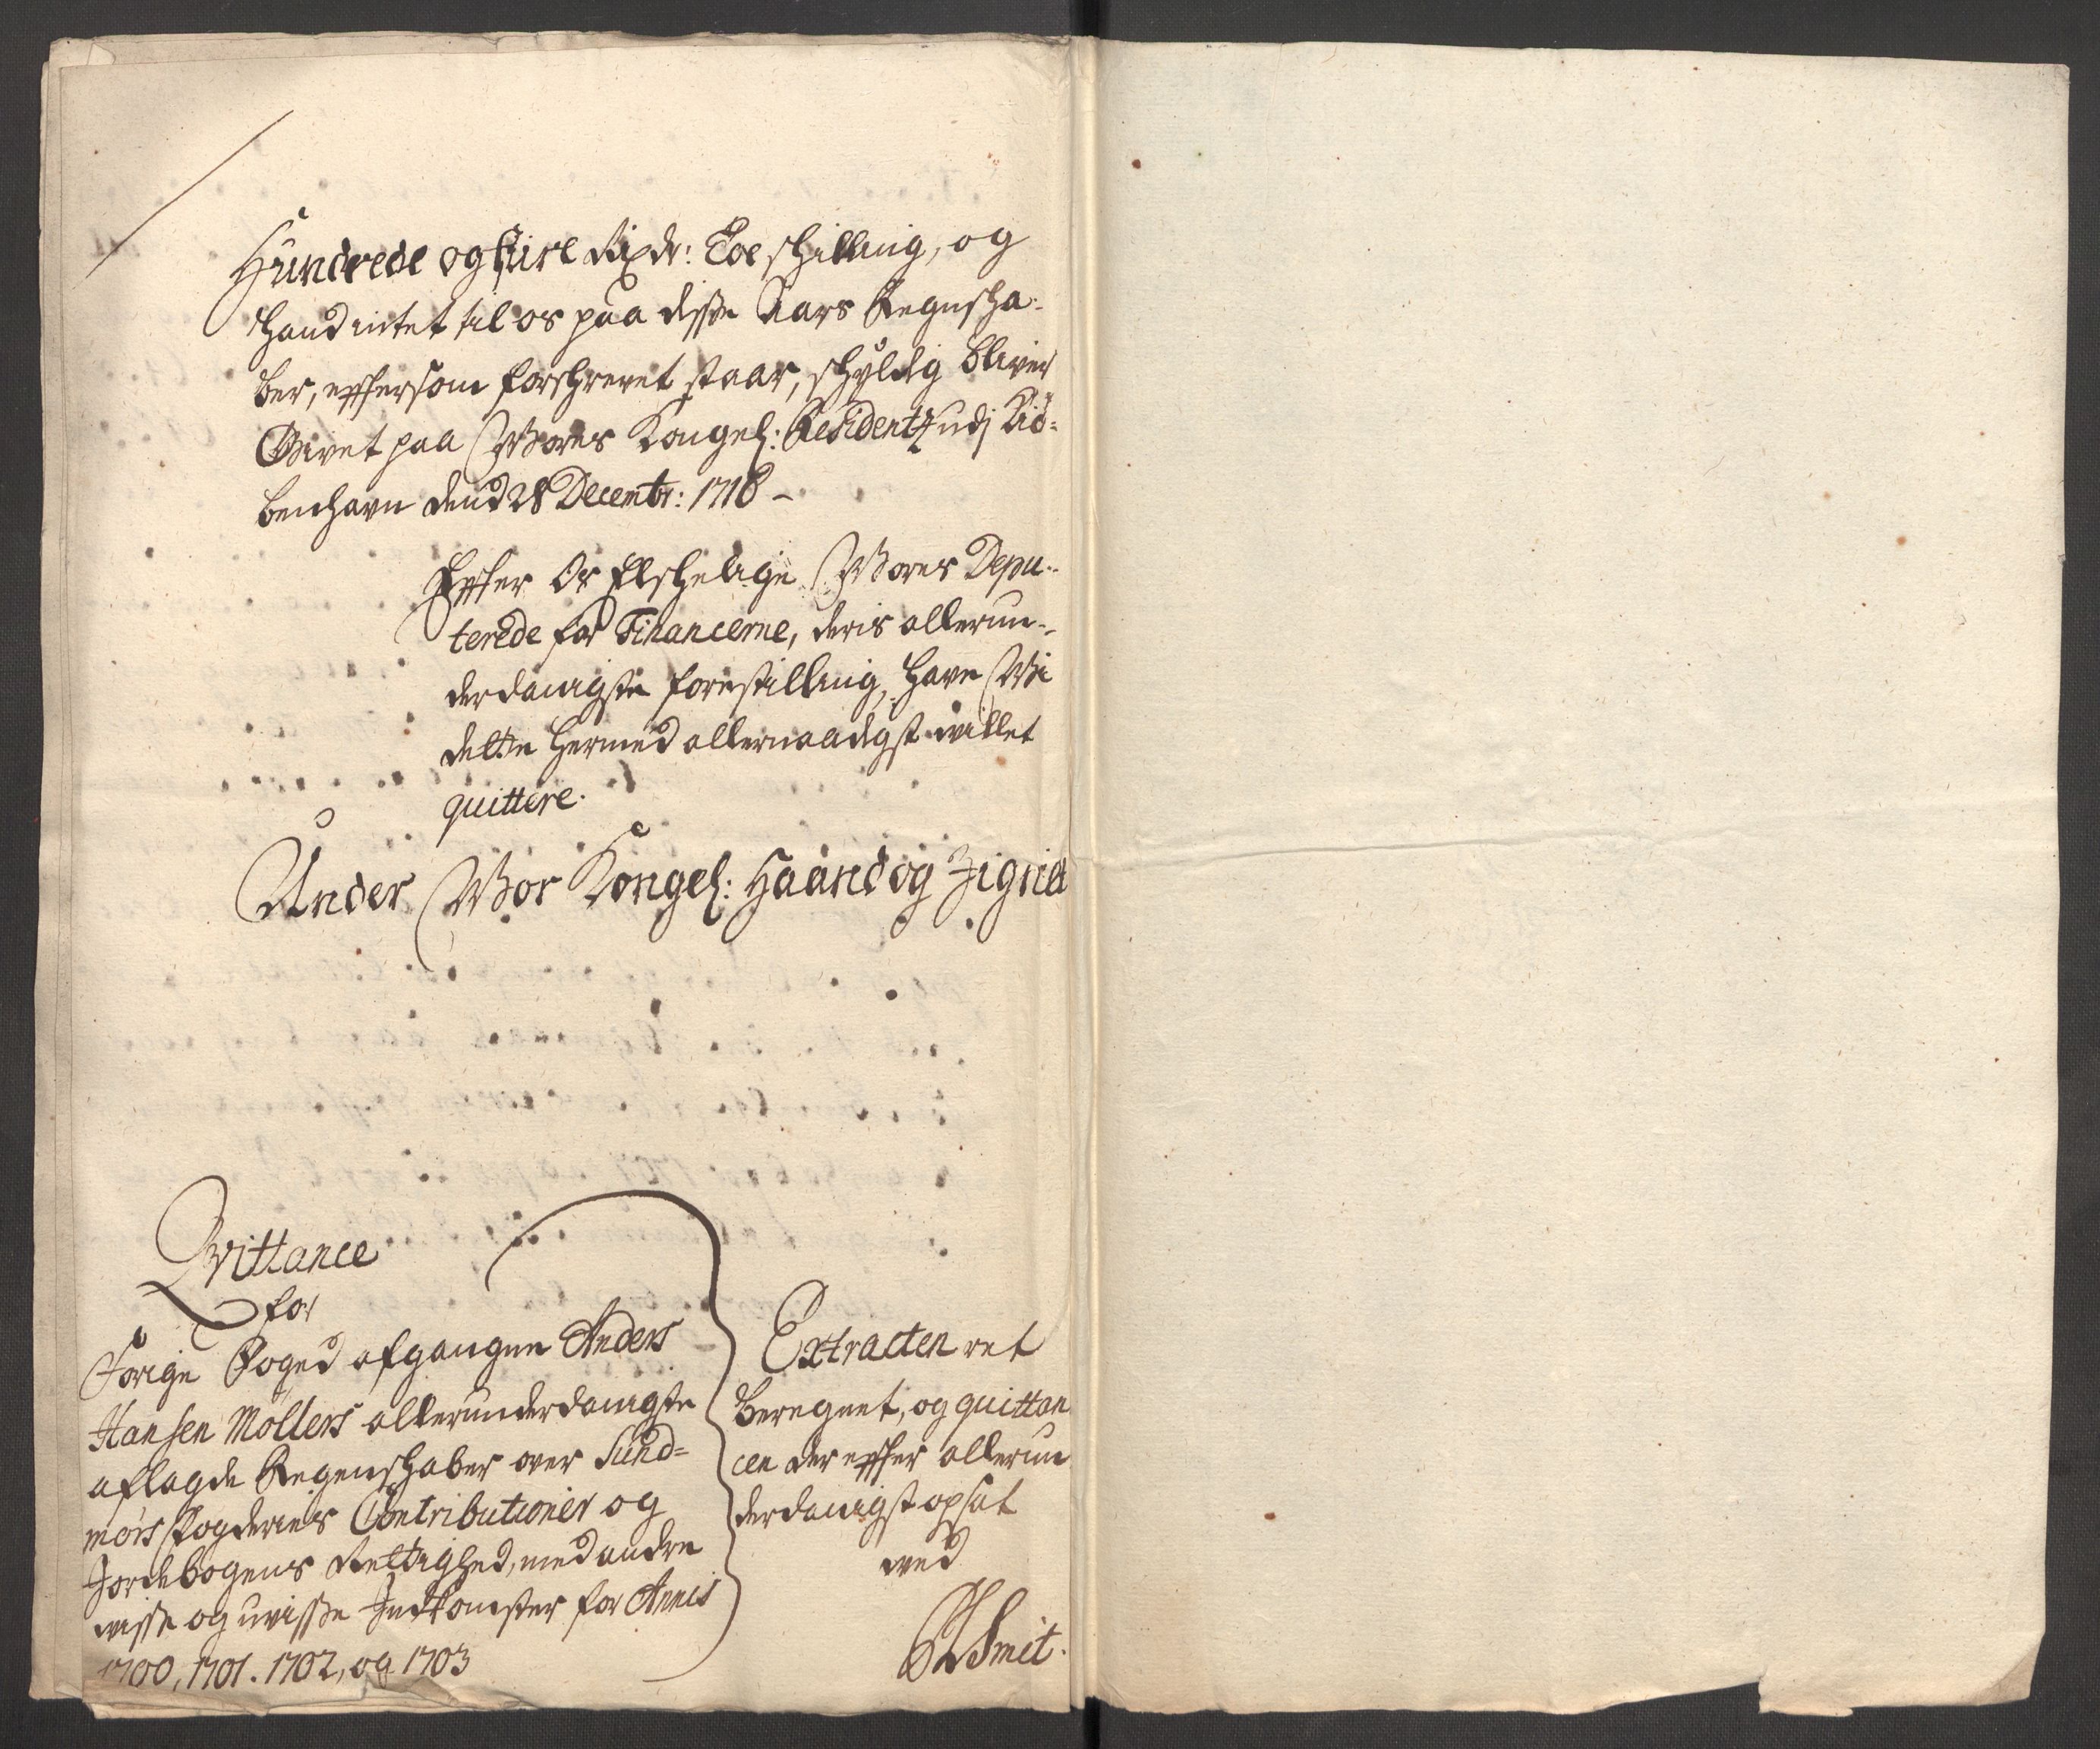 Hundrede og fiire Rixdr: Toe schilling, og
hand intet til os paa disse Aars Regnscha-
ber, effter som forschrevet staar, schyldig bliver
Givet paa Wores Kongel: Residentz udj Kiö-
benhavn dend 28 Decembr: 1718 -
Effter Os Elschelige Wores Depu-
terede for Financerne, deris allerun-
derdanigste forestilling, have Wi
dette hermed allernaadigst willet
quittere.
Under Wor Kongel: Haand og Zignet
Qvittance
for
Forige Foged afgangne Anders
Hansen Möllers allerunderdanigste
aflagde Regenschaber over Sünd-
mörs Fogderies Contributioner og
Jordebogens Rettighed, med andre
wisse og uwisse Indkomster for Annis
1700, 1701. 1702, og 1703
Extracten ret
beregnet, og quittan
cen der effter allerun
derdanigst opsat
wed
Smit.